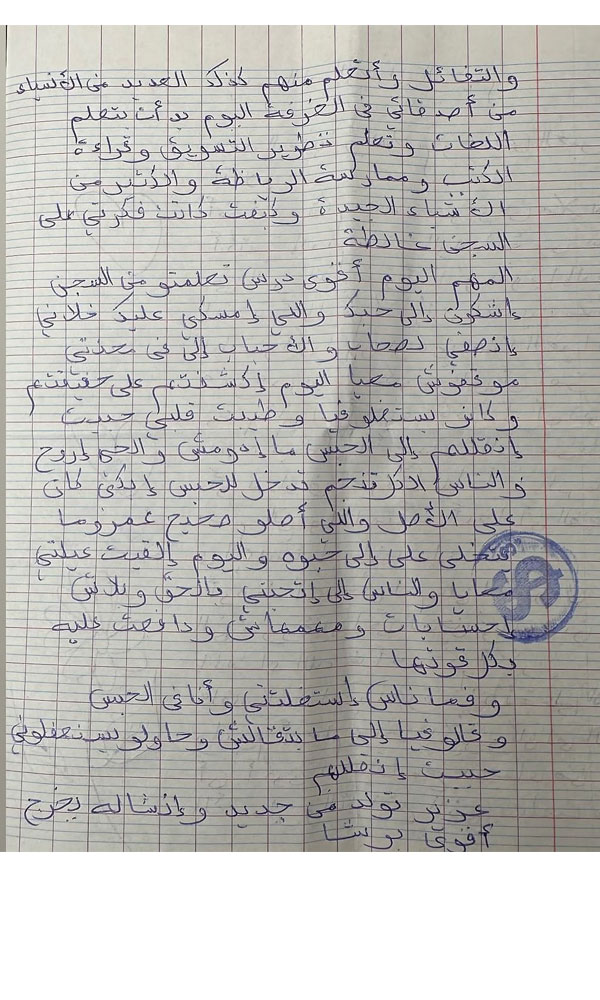 والتفائل وأتعلم منهم كذلك العديد من الأشياء
من أصدقائي في الغرفة اليوم بدأت نتعلم
اللغات وتعلم تطوير التسويق وقراءة
الكتب وممارسة الرياظة والكثير من
الأشياء الجيدة وكيفت كانت فكرتي على
السجن غالطة
المهم اليوم أقوى درس تعلمتو من السجن
إشكون إلي حبك واللي إمسكي عليك خلاني
إنصفي لصحاب والأحباب إلي في محنتي
موقفوش معيا اليوم إكتشفتهم على حقيقتهم
وكانو يستغلو فيا وطيبت قلبي حبيت
إنقللهم إلى الحبس ما إدومش والحي إروح
والناس الكل تنجم تدخل للحبس إيكن كان
على الأصل واللي أصلو صحيح عمرو ما
يتخلى على إلي حبوه واليوم إلقيت عيلتي
معايا والناس إلي إتحبني بالحق وبلاش
إحسابات ومهمهاتش ودافعت عليه
بكل قوتها
وفما ناس إستغلتني وأنا في الحبس
وقالو فيا إلي ما يتقالش وحاولو يستغفلوني
حبيت إنقللهم
عزيز تولد من جديد وإنشاله يخرج
أقوى برشا